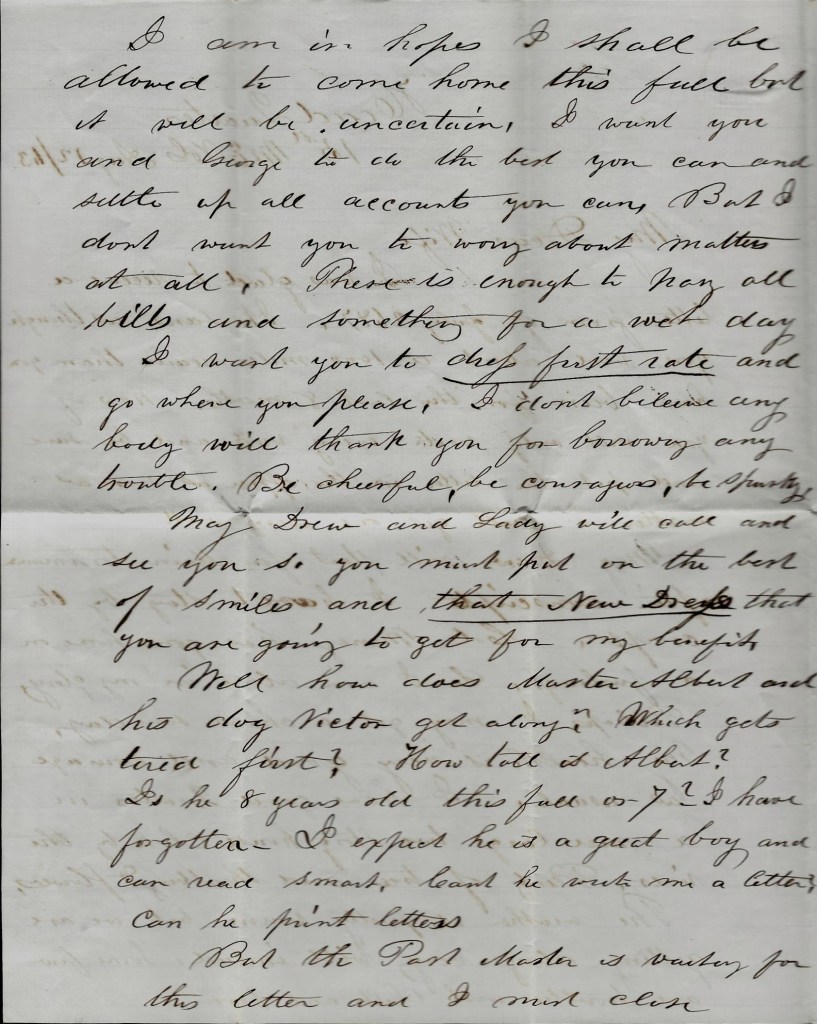 I am in hopes I shall be
allowed to come home this fall but
it will be uncertain, I want you
and George to do the best you can and
settle up all accounts you can, But I
dont want you to worry about matters
at all, There is enough to pay all
bills and something for a wet day
I want you to dress first rate and
go where you please, I dont bileive any
body will thank you for borrowing any
trouble. Be cheerful, be couragous, be spunky,
Maj Drew and Lady will call and
see you so you must put on the best
of smiles and that New Dress that
you are going to get for my benefit,
Well how does Master Albert and
his dog Victor get along? Which gets
tired first? How tall is Albert?
Is he 8 years old this fall or 7? I have
forgotten - I expect he is a great boy and
can read smart, Cant he write me a letter,
Can he print letters
But the Post Master is waiting for
this letter and I must close